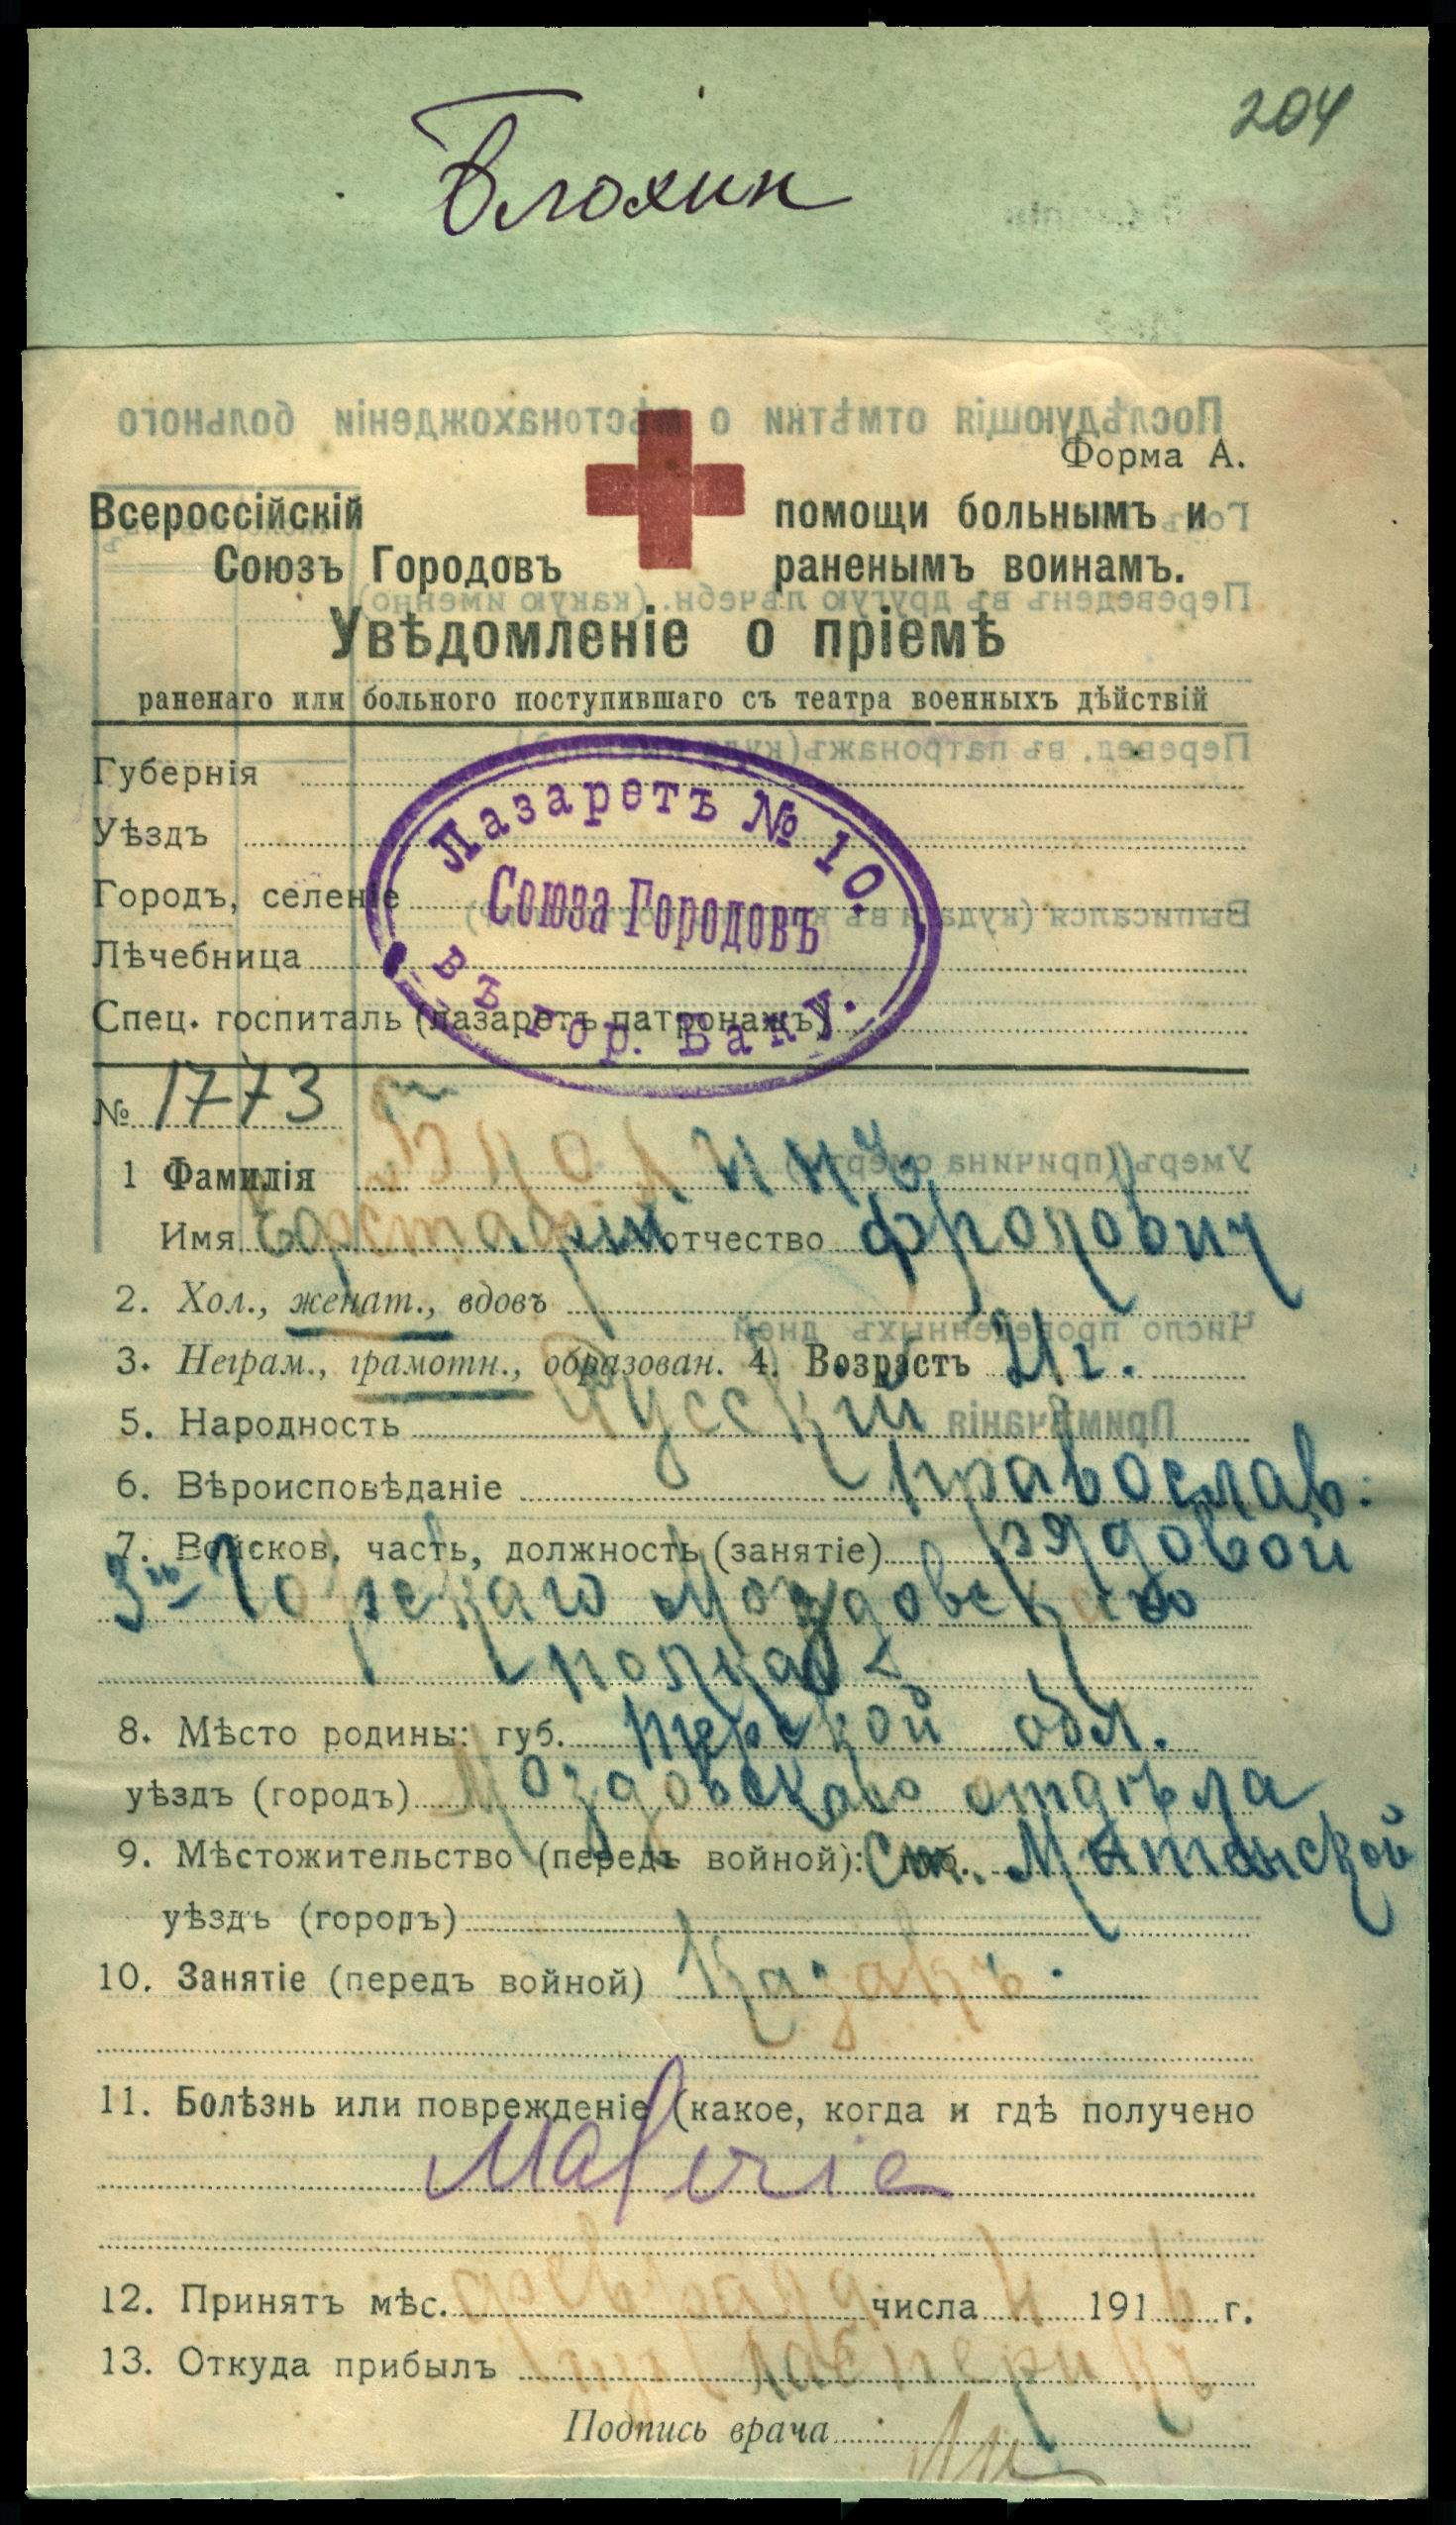 204
Блохин
Форма А.
Всероссійскій
Союзъ Городовъ
помощи больнымъ и
раненымъ воинамъ.
Увѣдомленіе о пріемѣ
раненаго или больного поступившаго съ театра военныхъ дѣйствій
Губернія
Уѣздъ
Городъ, селеніе
Лѣчебница
Спец. госпиталь (лазаретъ патронажъ)
Лазаретъ № 10.
Союза Городовъ
въ гор. Баку.
№ 1773
1 Фамилія
Имя Евстафій отчество Фролович
2. Хол., женат., вдовъ
3. Неграм., грамотн., образован. 4. Возрастъ 21 г.
5. Народность Русский
6. Вѣроисповѣданіе православ:
7. Войсков. часть, должность (занятіе) рядовой
3го Горскаго Моздовскаго
полка
8. Мѣсто родины: губ. терской обл.
уѣздъ (городъ) Моздовскаго отдѣла
9. Мѣстожительство (передъ войной): губ. Ст.
уѣздъ (городъ)
10. Занятіе (передъ войной) Казакъ.
11. Болѣзнь или поврежденіе (какое, когда и гдѣ получено
12. Принятъ мѣс. февраля числа 4 1916 г.
13. Откуда прибылъ
Подпись врача